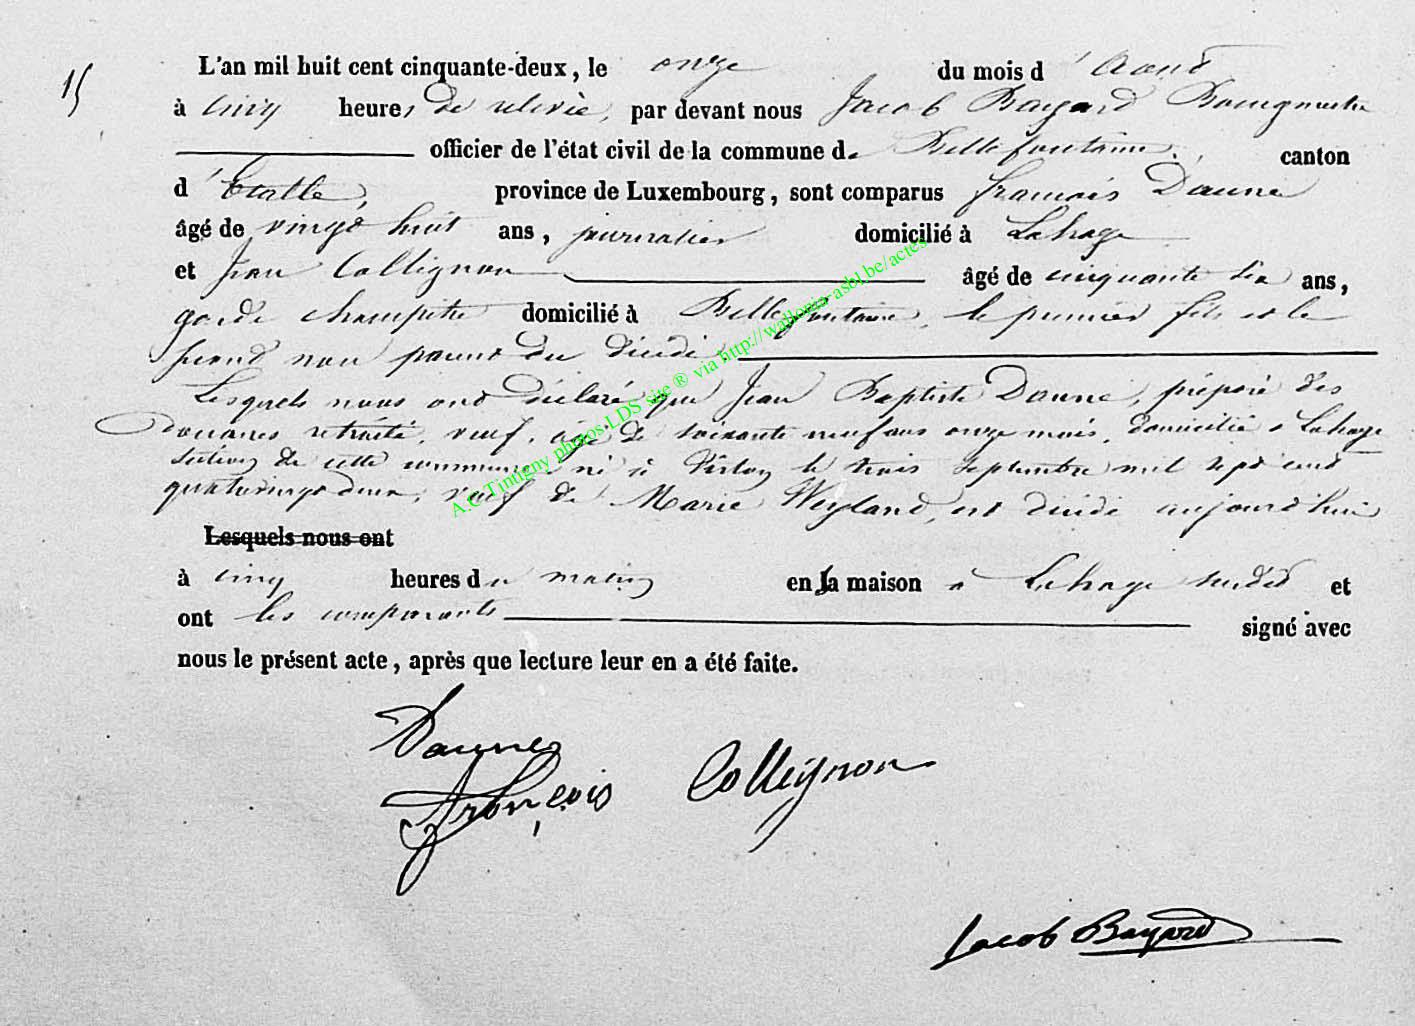 15
L'an mil huit cent cinquante-deux, le onze du mois d'Août
à cinq heures de relevée, par devant nous Jacob Bayard Bourgmestre
officier de l'état civil de la commune de Bellefontaine, canton
d'Etalle, province de Luxembourg, sont comparus françois Daune
âgé de vingt huit ans, journalier domicilié à Lahage
et Jean Collignon âgé de cinquante six ans,
garde champêtre domicilié à Bellefontaine, le premier fils et le
second non parent du décédé
Lesquels nous ont déclaré que Jean Baptiste Daune, préposé des
douanes retraité, veuf, âgé de soixante neuf ans onze mois, domicilié à Lahage
section de cette commune, né à Virton le trois septembre mil sept cent
quatrevingt deux, veuf de Marie Weyland, est décédé aujourd'hui
Lesquels nous ont
à cinq heures du matin en sa maison à Lahage susdit et
ont les comparants signé avec
nous le présent acte, après que lecture leur en a été faite.
Daune
françois Collignon
Jacob Bayard
A.C Tintigny photos LDS site ® via http://wallonia-asbl.be/actes